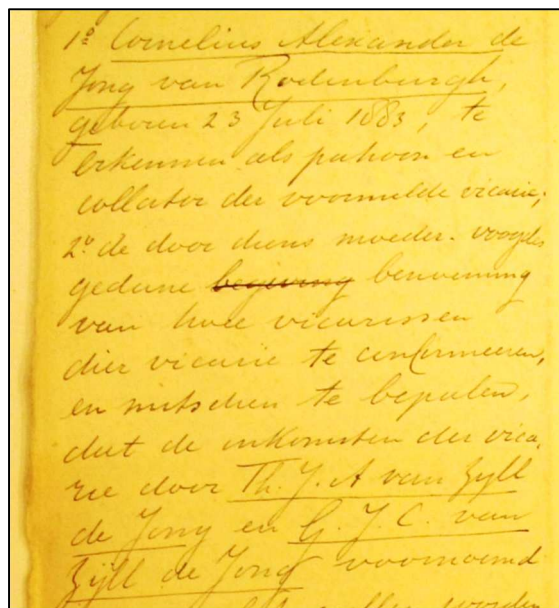 1º Cornelius Alexander de
Jong van Rodenburgh,
geboren 23 Juli 1883, te
erkennen als patroon en
collator der voormelde vicarie;
2º de door diens moeder-voogdes
gedane begeving benoeming
van twee vicarissen
dier vicarie te confirmeeren,
en mitsdien te bepalen,
dat de inkomsten der vica-
rie door Th. J. A van Zÿll
de Jong en G. J. C. van
Zÿll de Jong voornoemd
worden